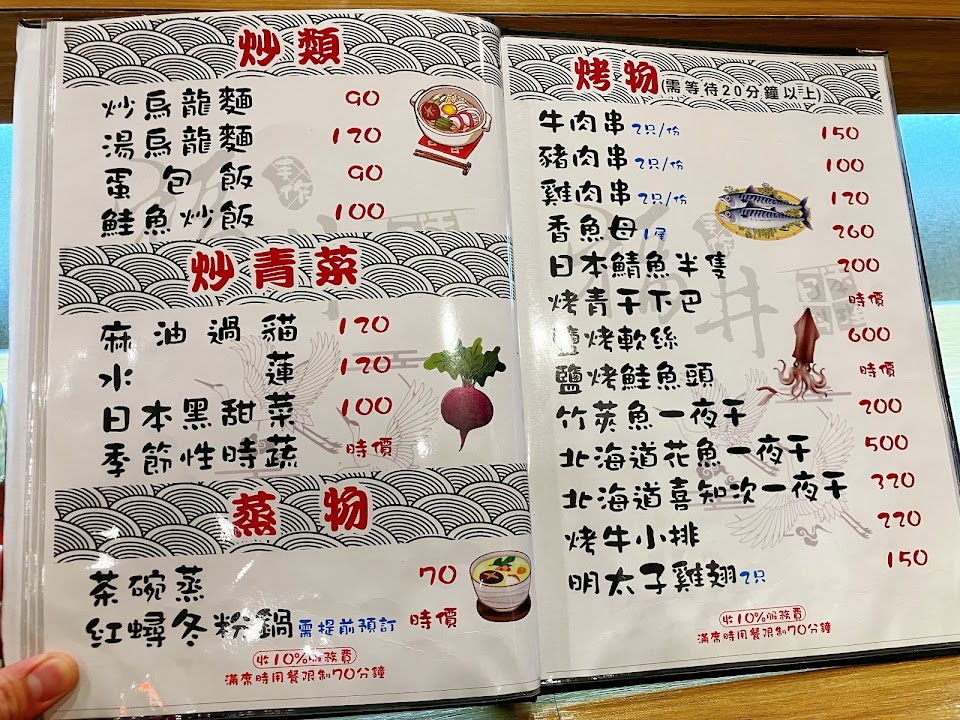 炒類
炒烏龍麵 90
湯烏龍麵 120
蛋包飯 90
鮭魚炒飯 100
炒青菜
麻油過貓 120
水蓮 120
日本黑甜菜 100
季節性時蔬 時價
蒸物
茶碗蒸 70
紅蟳冬粉鍋需提前預訂 時價
收10%服務費
滿席時用餐限制70分鐘
烤物(需等待20分鐘以上)
牛肉串2只/份 150
豬肉串2只/份 100
雞肉串2只/份 120
香魚母1尾 260
日本鯖魚半隻 200
烤青干下巴 時價
鹽烤軟絲 600
鹽烤鮭魚頭 時價
竹莢魚一夜干 200
北海道花魚一夜干 500
北海道喜知次一夜干 320
烤牛小排 220
明太子雞翅2只 150
收10%服務費
滿席時用餐限制70分鐘